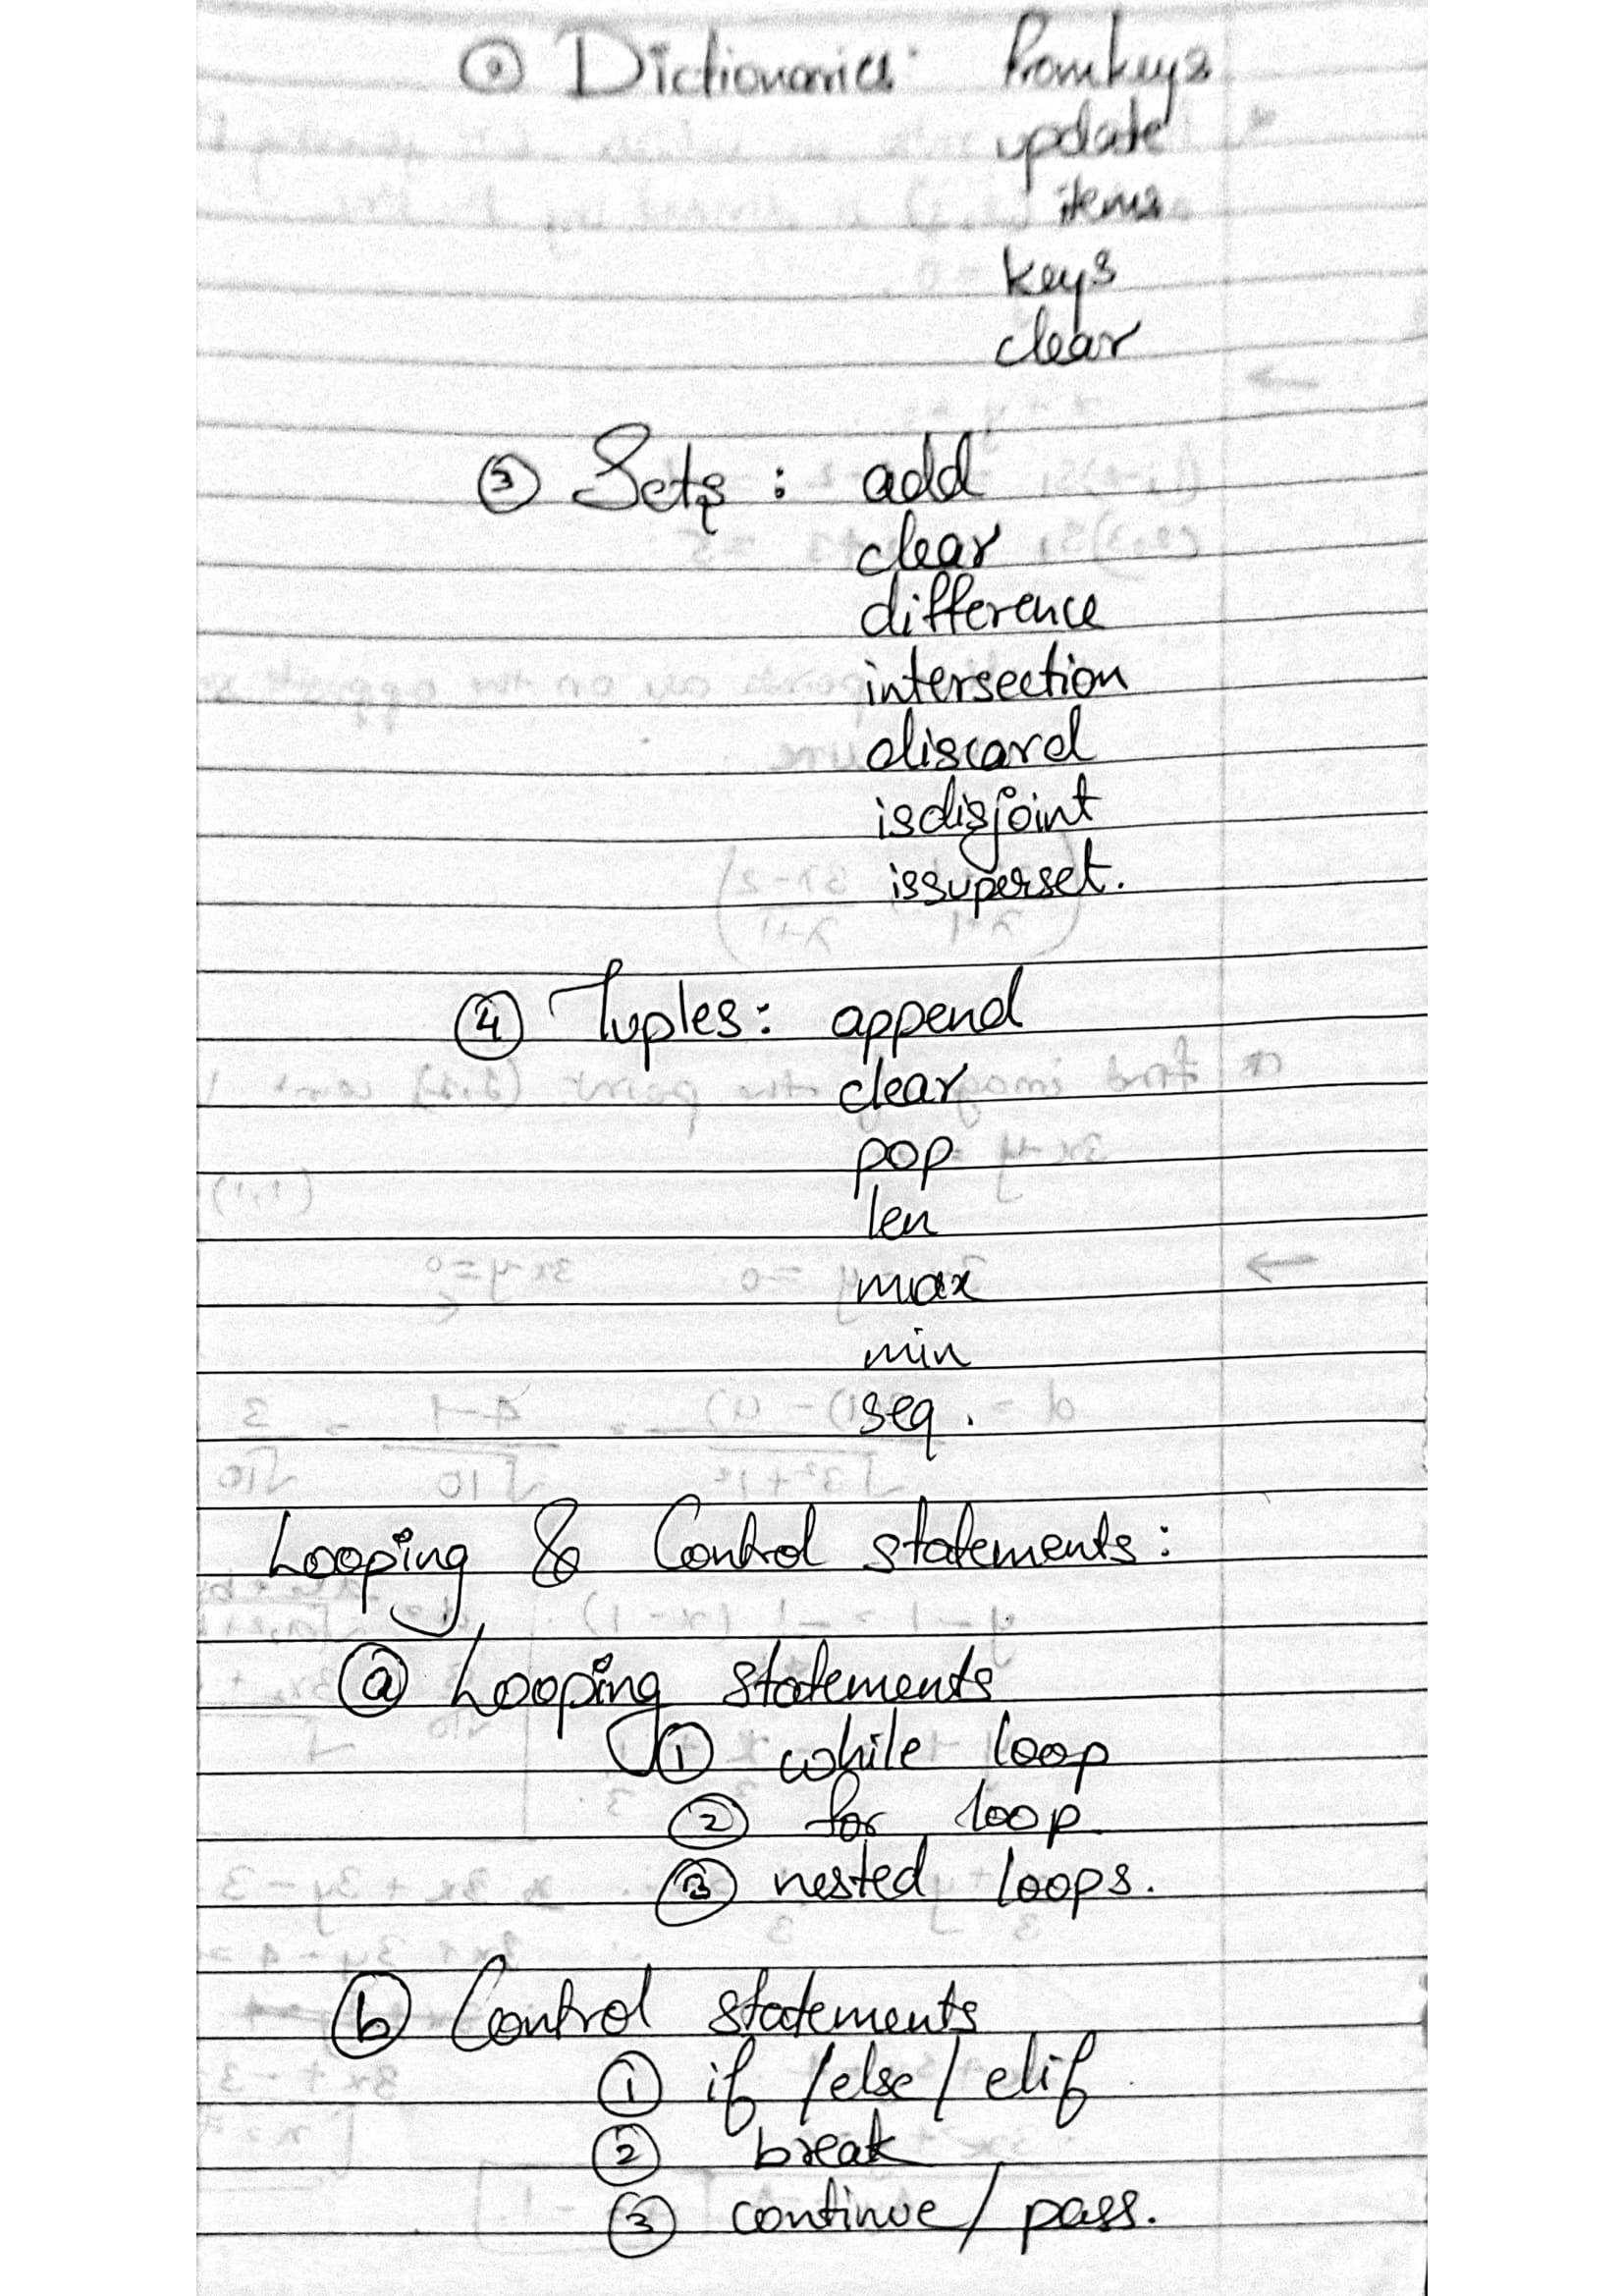 ② Dictionaries: fromkeys
update
items
keys
clear
③ Sets : add
clear
difference
intersection
discard
isdisjoint
issuperset.
④ Tuples: append
clear
pop
len
max
min
seq.
Looping & Control statements:
ⓐ Looping statements
① while loop
② for loop
③ nested loops.
ⓑ Control statements
① if /else/ elif
② break
③ continue / pass.